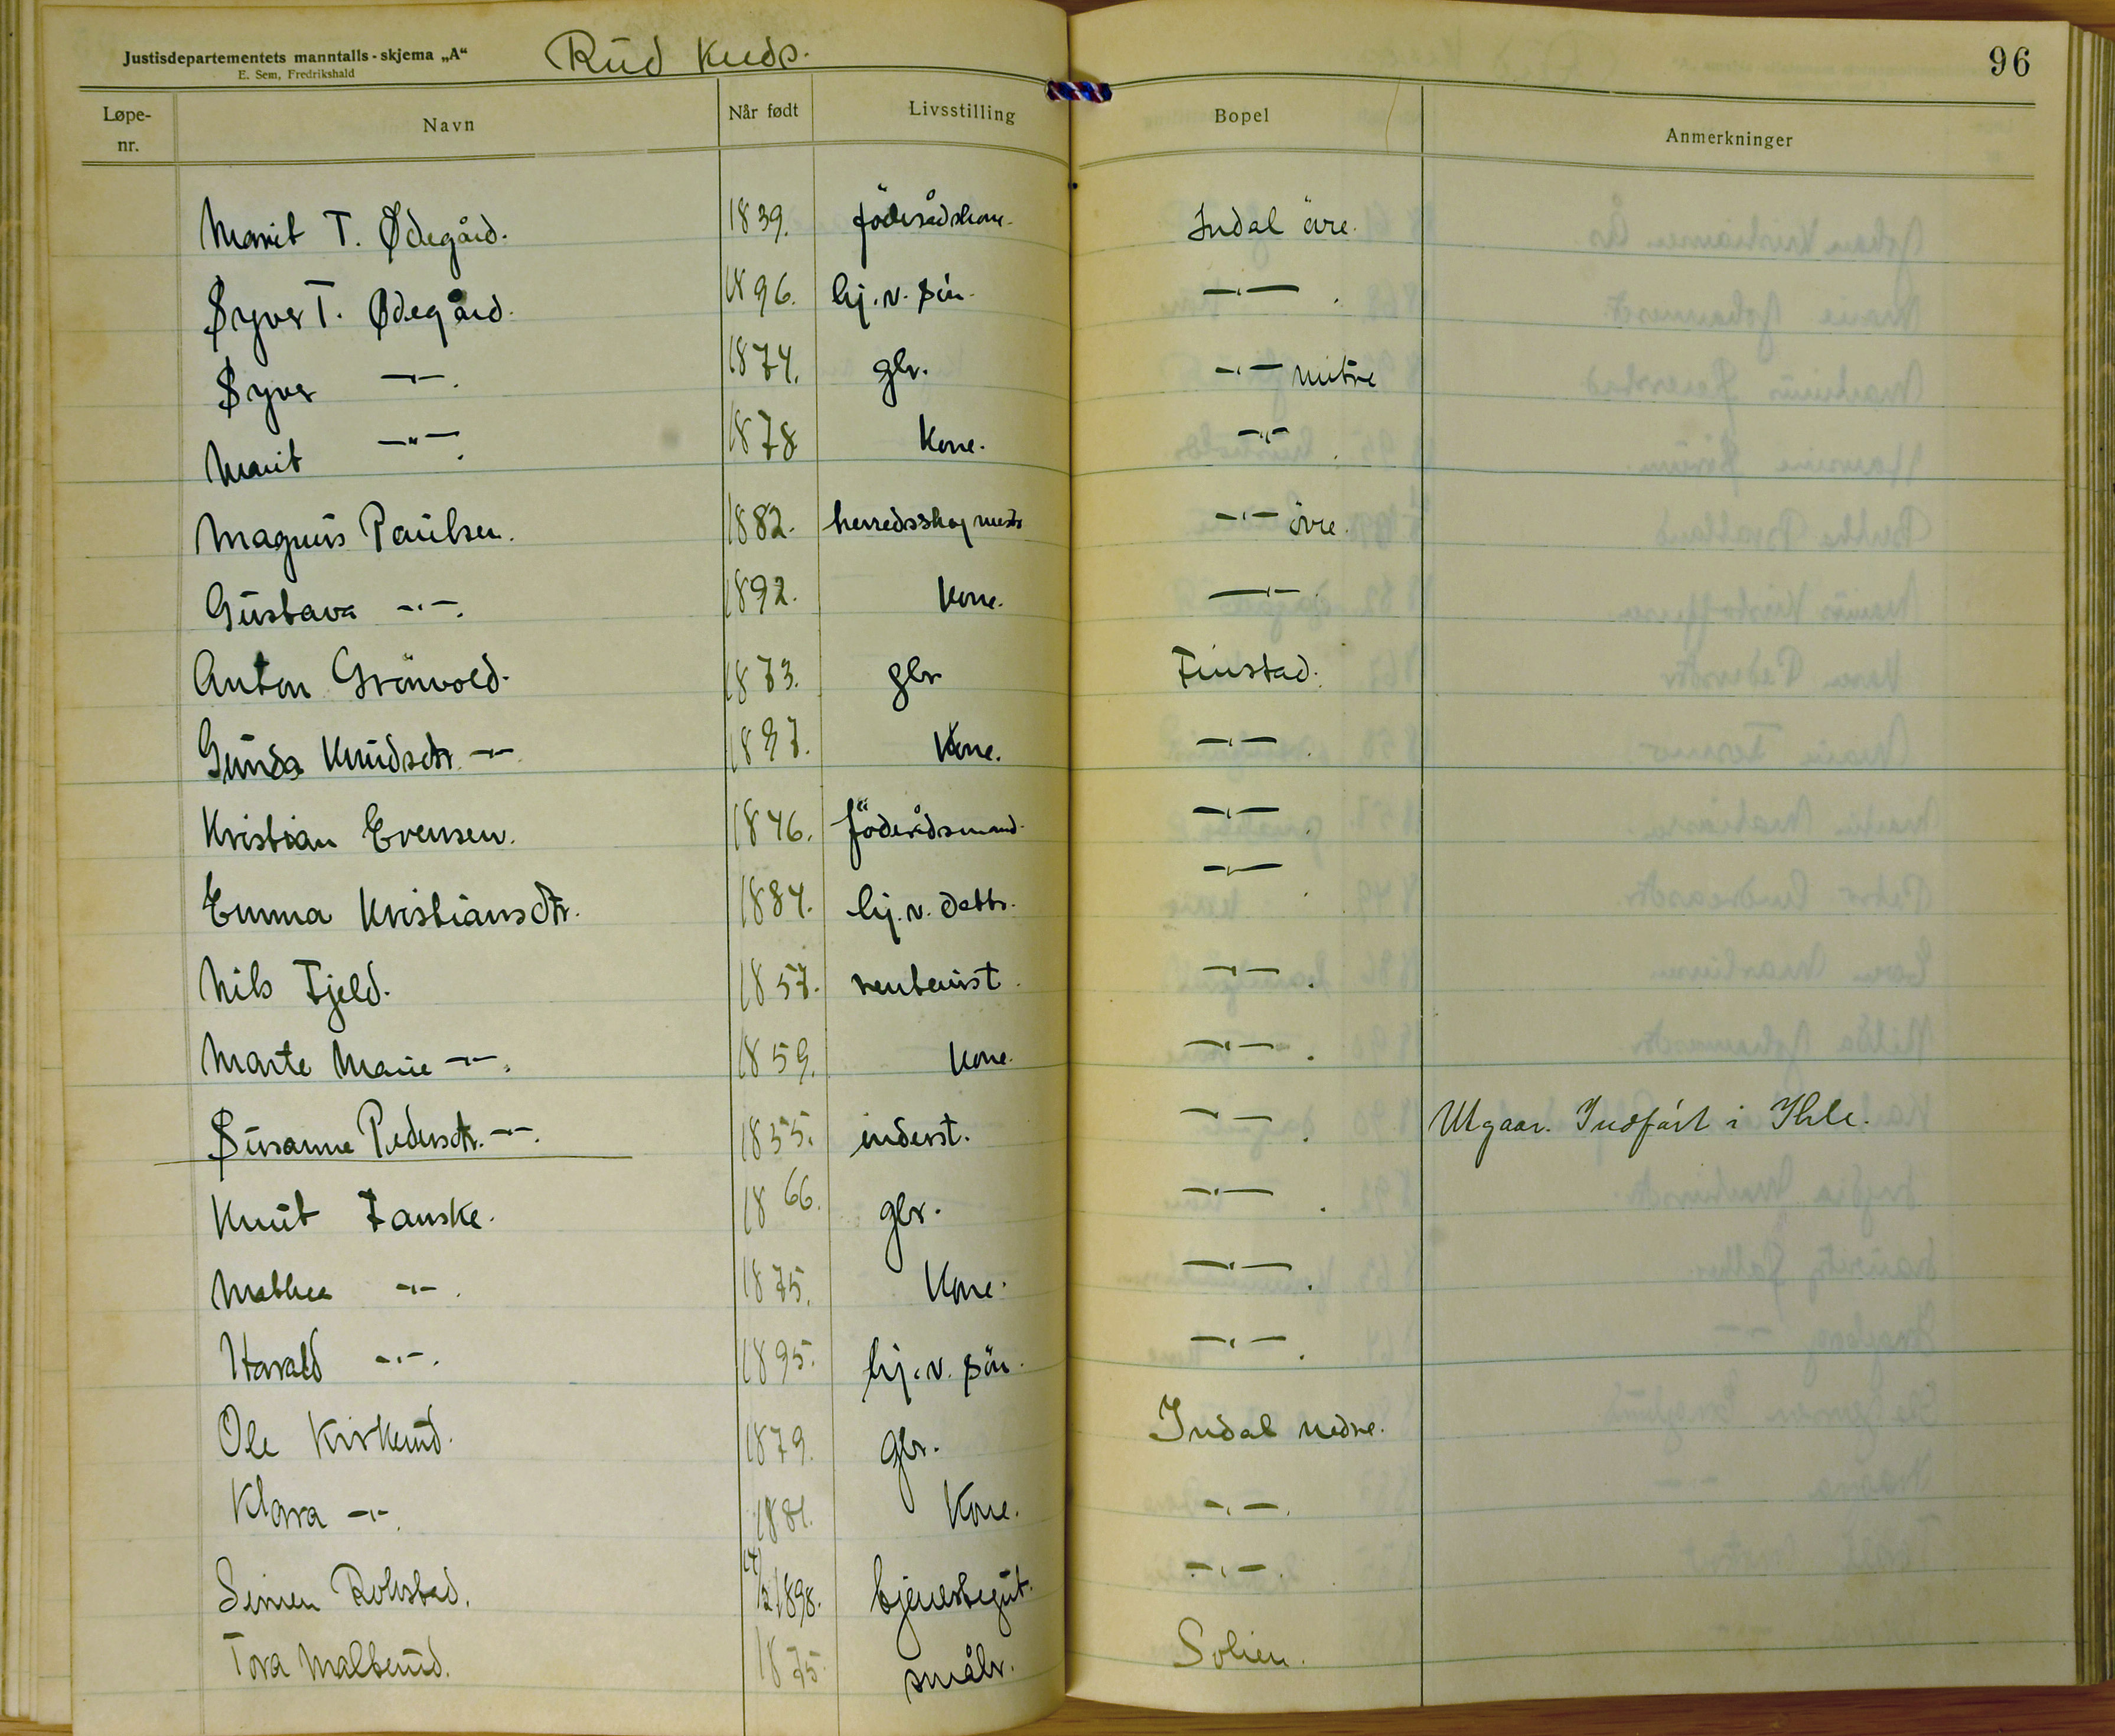 Justisdepartementets manntalls-skjema „A“ Rud kreds.
E. Sem, Fredrikshald
96
Løpe-nr. Navn Når født Livsstilling Bopel Anmerkninger
Marit T. Ødegård. 1839. föderådskone. Indal övre.
Syver T. Ødegård. 1896. hj. v. sön. —"—.
Syver —"—. 1874. gbr. —"— mitre
Marit —"—. 1878 Kone. —"—.
Magnus Paulsen. 1882. herredsskogmest. —"— övre.
Gustava —"—. 1892. Kone. —"—.
Anton Grönvold. 1873. gbr Finstad.
Gunda Knudsdtr. —"— 1897. Kone. —"—.
Kristian Evensen. 1846. föderådsmand. —"—.
Emma Kristiansdtr. 1884. hj. v. dattr. —"—.
Nils Fjeld. 1857. rentenist. —"—.
Marte Marie —"—. 1859. Kone. —"—.
Susanne Pedersdtr. —"—. 1855. inderst. —"—. Utgaar. Indført i Ihle.
Knut Fauske. 1866. gbr. —"—.
Mathea —"—. 1875. Kone. —"—.
Harald —"—. 1895. hj. v. sön. —"—.
Ole Kirkerud. 1879. gbr. Indal nedre.
Klara —"—. 1881. Kone. —"—.
Simen Rolvstad. 1898. tjenestegut. —"—.
Tora Malterud. 1875. småbr. Solien.